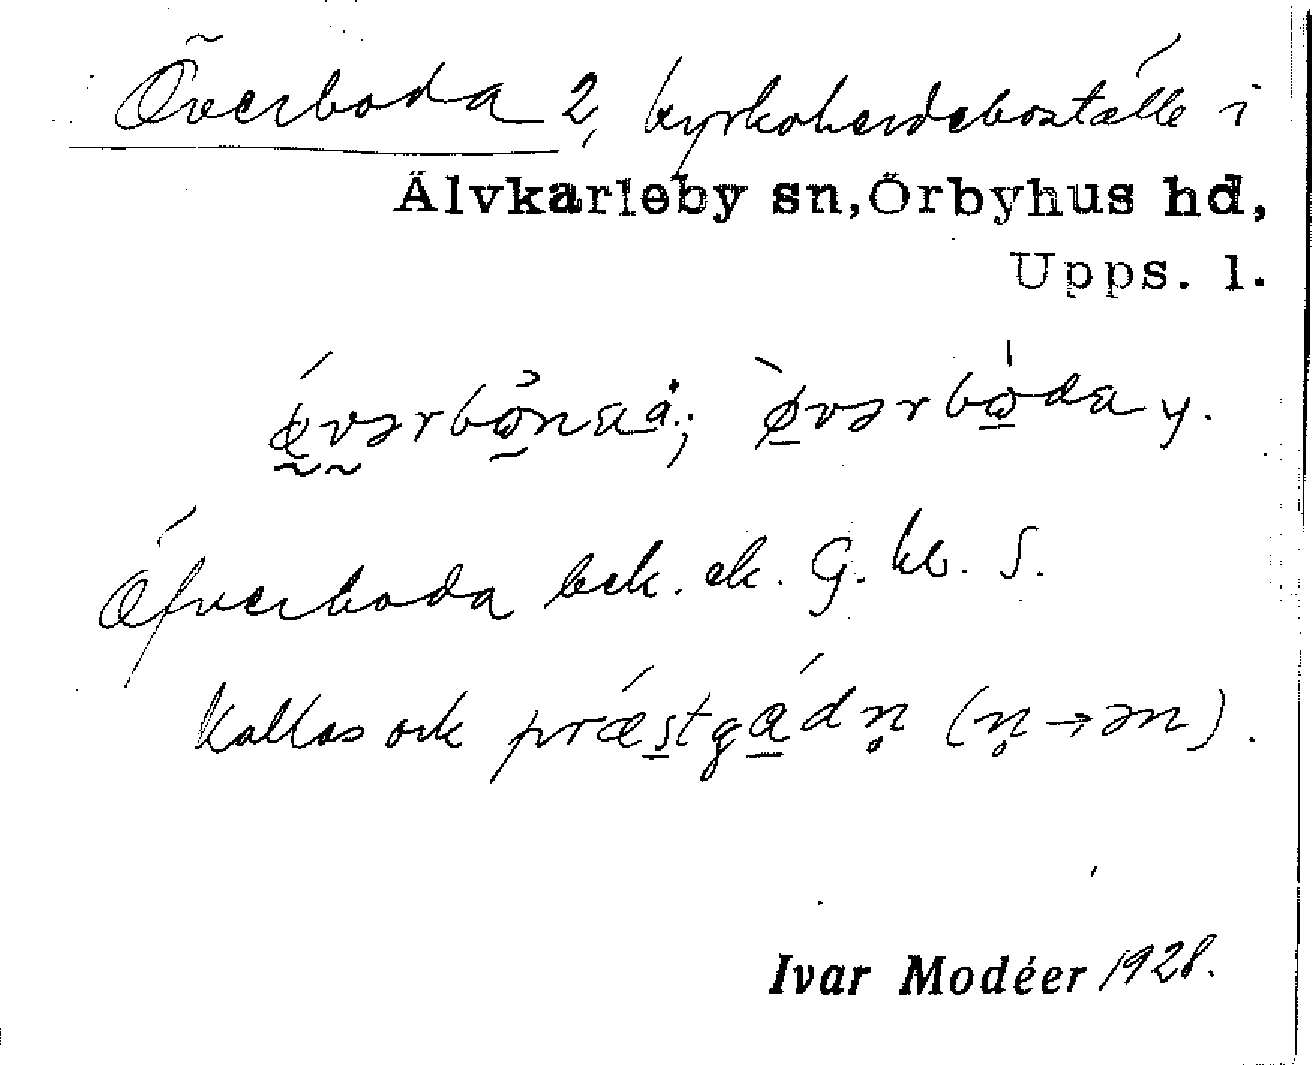 Överboda 2, kyrkoherdeboställe i
Älvkarleby sn, Örbyhus hd,
Upps. l.
Öfverboda bek. ek. G. kb. S.
Kallas ock prǽstgádn̥ (n̥→ən).
Ivar Modéer 1928.